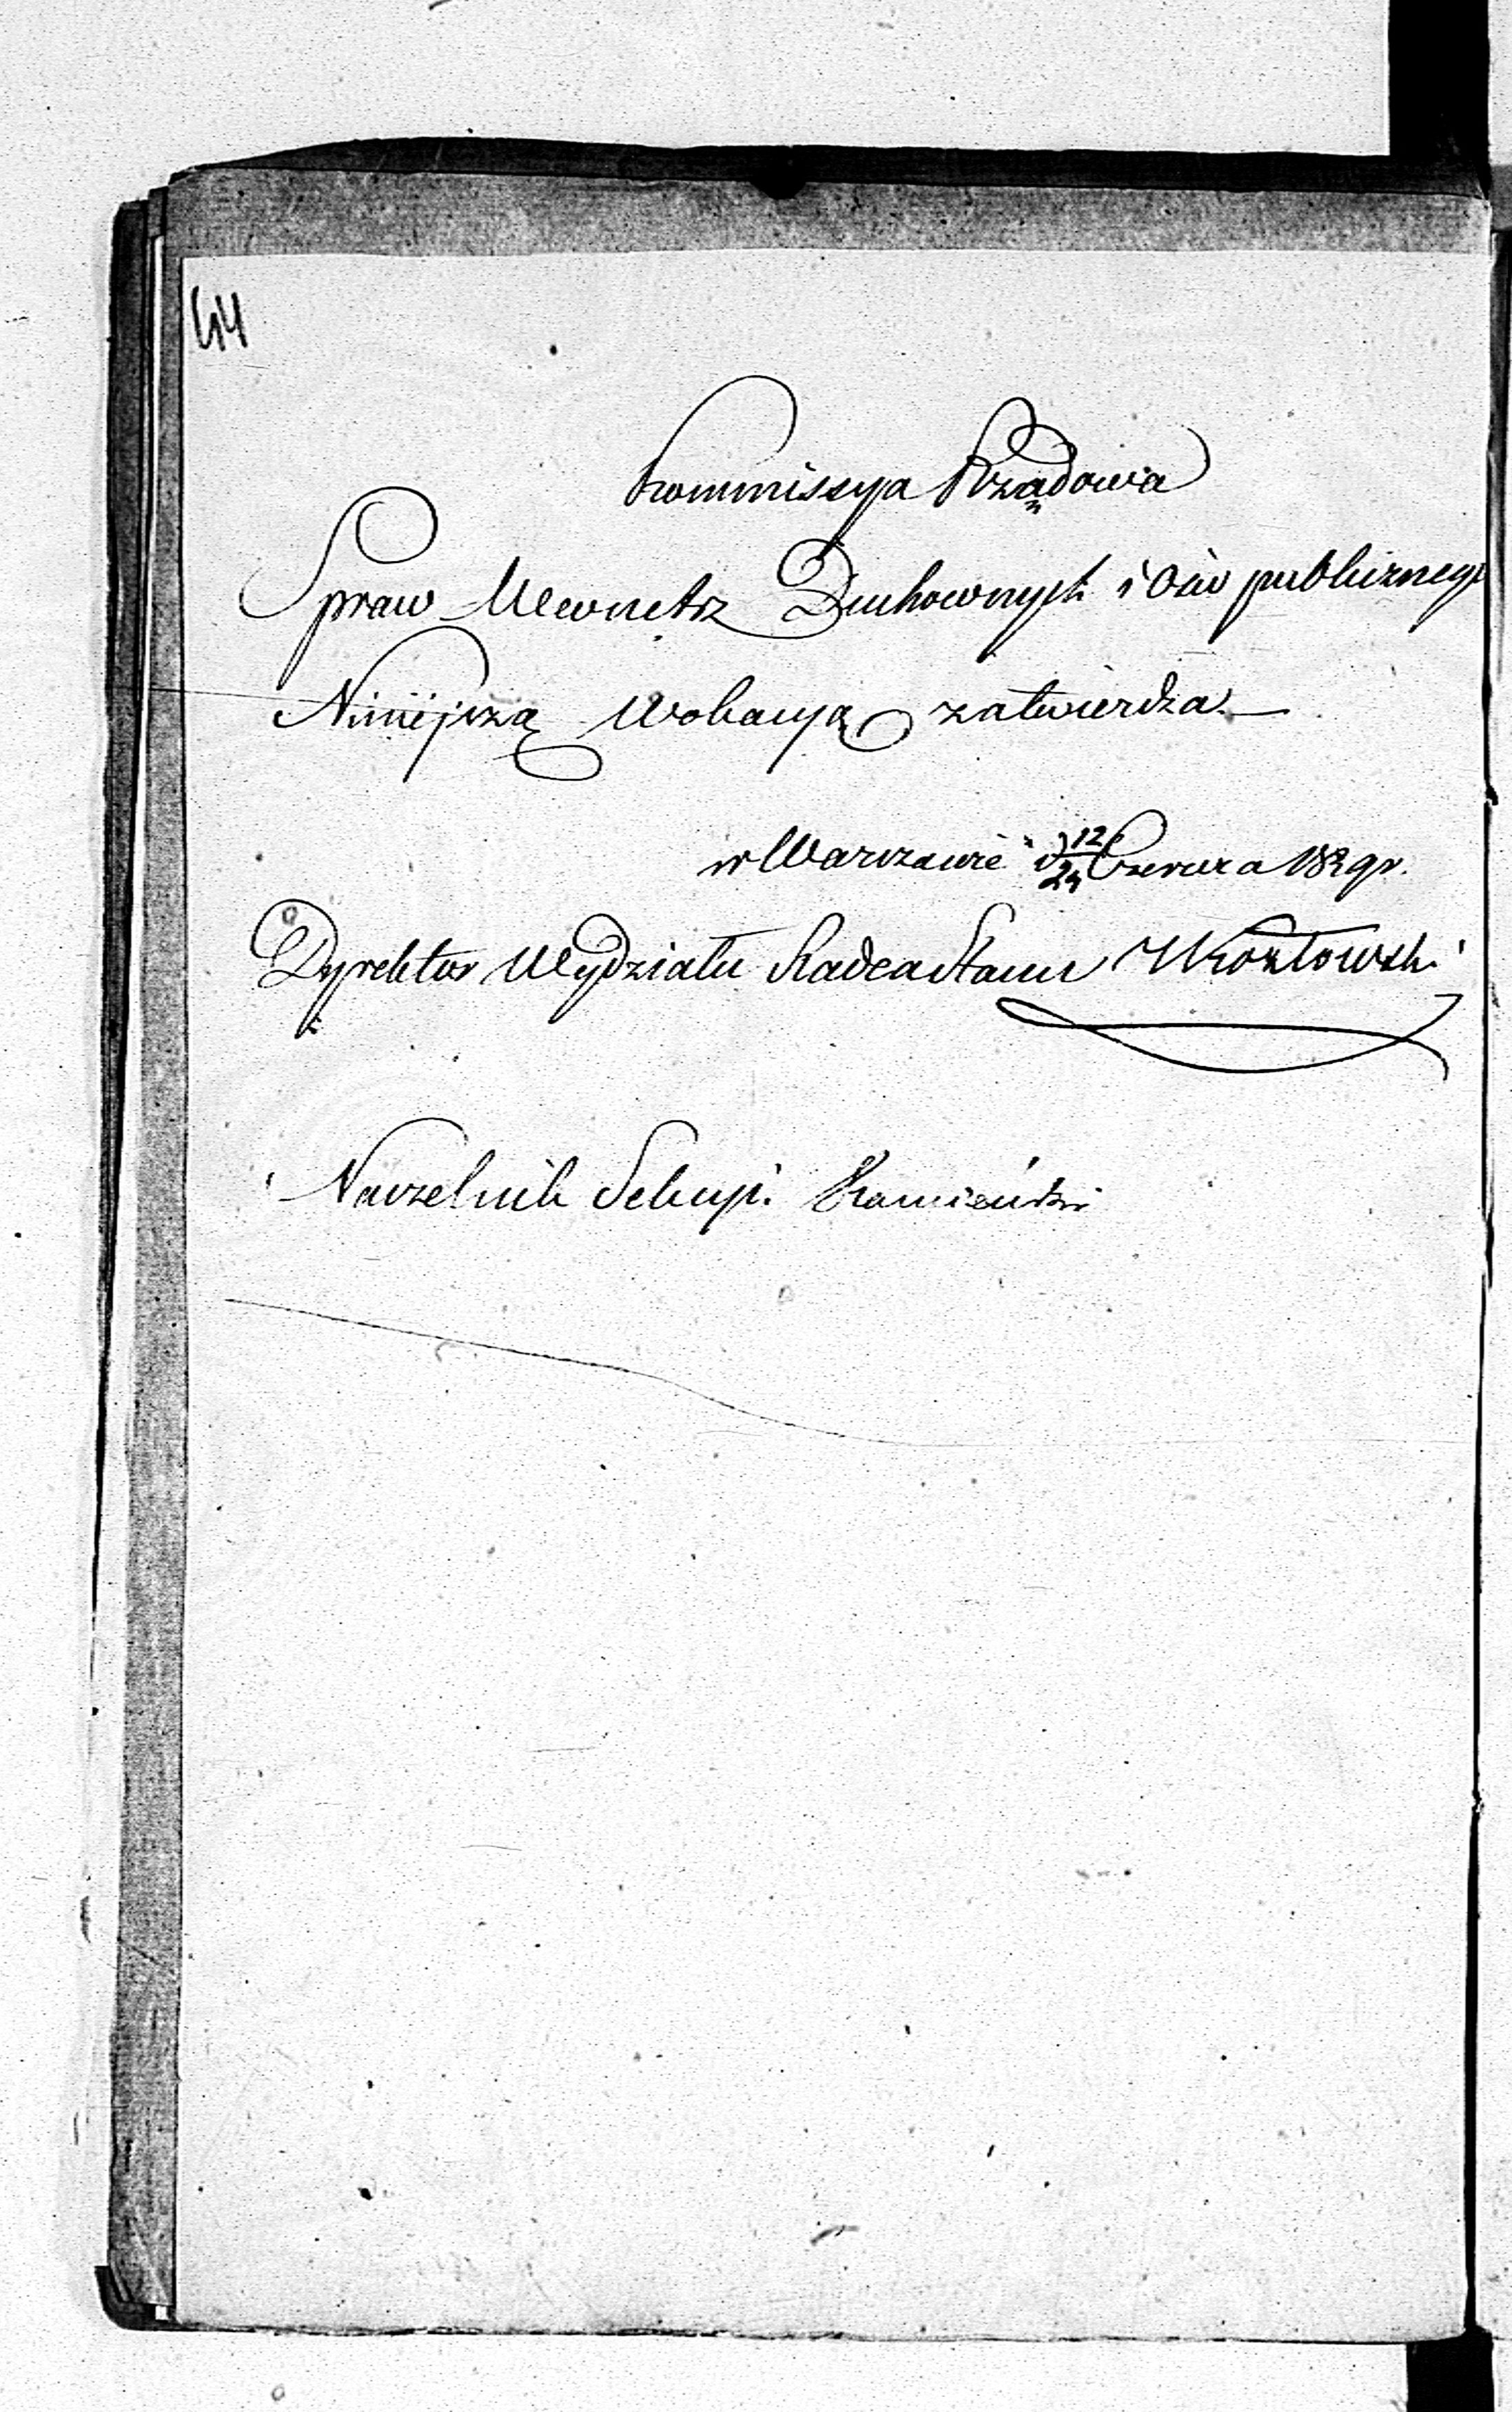 44
Kommissya Rządowa
Spraw Wewnetrz Duchownych i Ośw publicznego
Niniejszą wokacyą zatwierdza. —
w Warszawie d 12/24 Czerwca 1839 r.
Dyrektor Wydziału Radca Stanu Kozłowski
Naczelnik Sekcyi. Kamieński